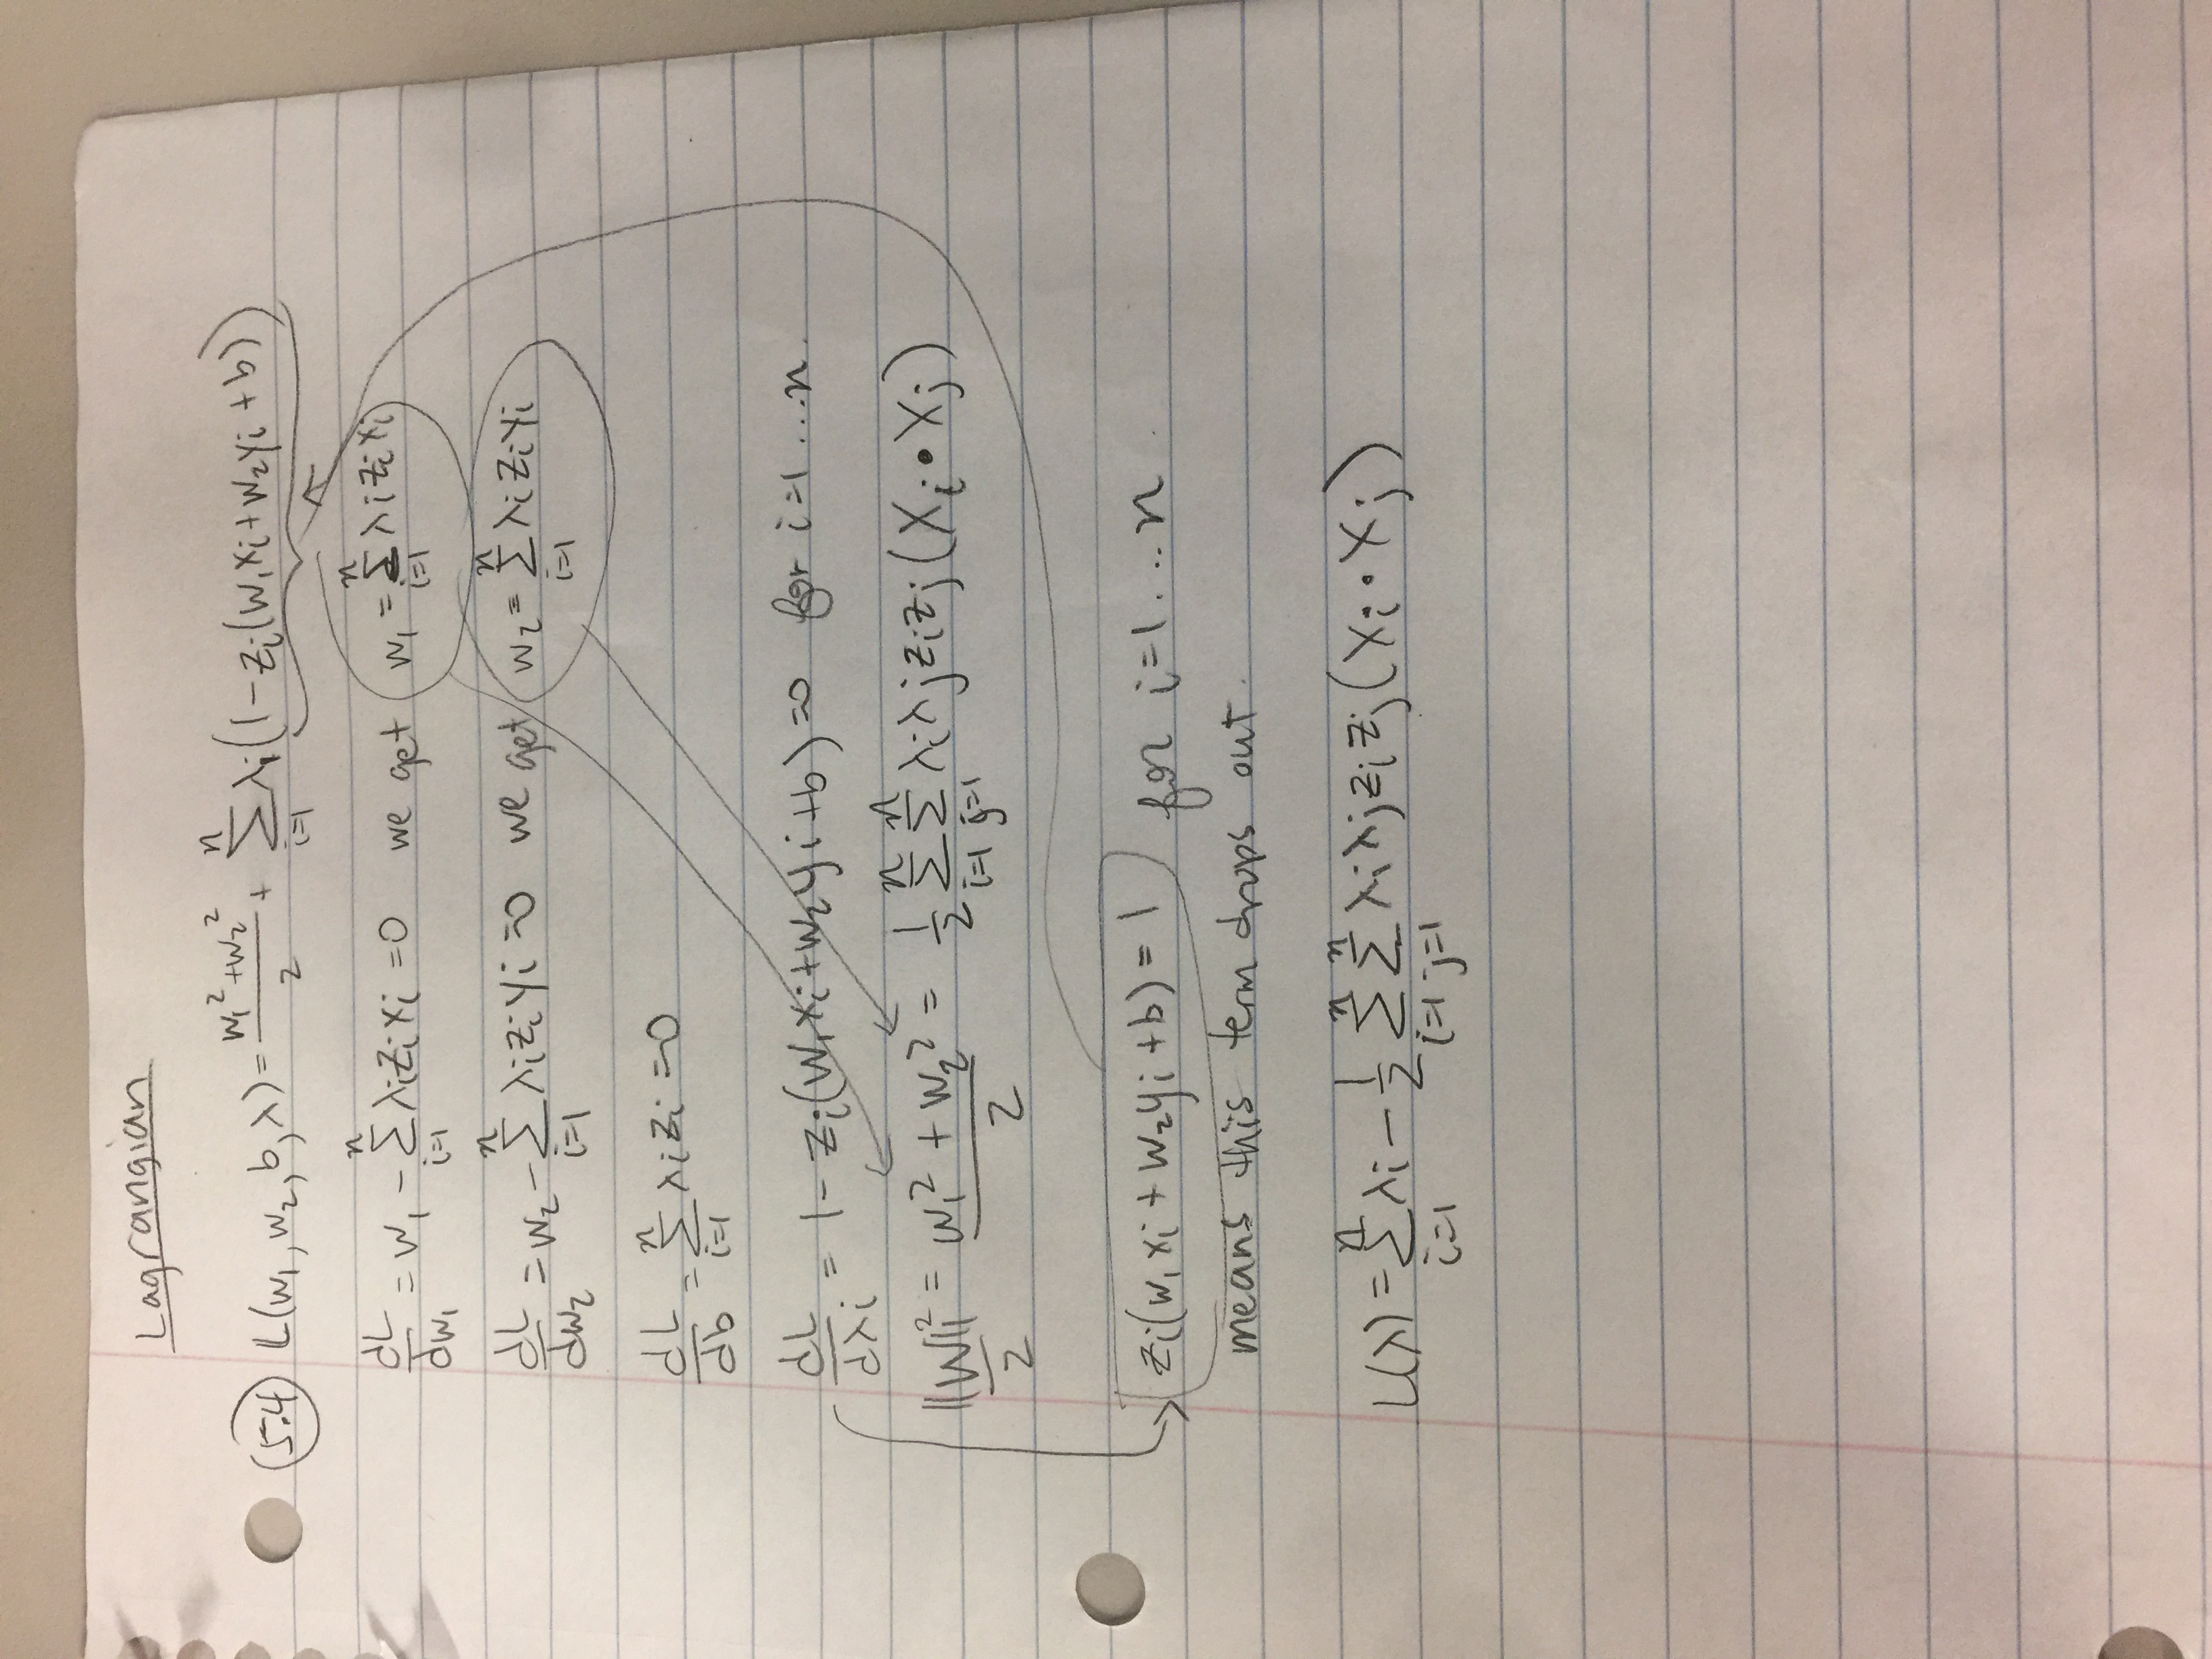 Lagrangian
(5.4) L(w₁, w₂, b, λ) = (w₁² + w₂²)/2 + Σᵢ₌₁ⁿ λᵢ(1 - zᵢ(w₁xᵢ + w₂yᵢ + b))
dL/dw₁ = w₁ - Σᵢ₌₁ⁿ λᵢzᵢxᵢ = 0 we get w₁ = Σᵢ₌₁ⁿ λᵢzᵢxᵢ
dL/dw₂ = w₂ - Σᵢ₌₁ⁿ λᵢzᵢyᵢ = 0 we get w₂ = Σᵢ₌₁ⁿ λᵢzᵢyᵢ
dL/db = Σᵢ₌₁ⁿ λᵢzᵢ = 0
dL/dλᵢ = 1 - zᵢ(w₁xᵢ + w₂yᵢ + b) = 0 for i=1...n.
||W||²/2 = (w₁² + w₂²)/2 = 1/2 Σᵢ₌₁ⁿ Σⱼ₌₁ⁿ λᵢλⱼzᵢzⱼ(Xᵢ • Xⱼ)
zᵢ(w₁xᵢ + w₂yᵢ + b) = 1 for i=1...n.
means this term drops out.
L(λ) = Σᵢ₌₁ⁿ λᵢ - 1/2 Σᵢ₌₁ⁿ Σⱼ₌₁ⁿ λᵢλⱼzᵢzⱼ(Xᵢ • Xⱼ)